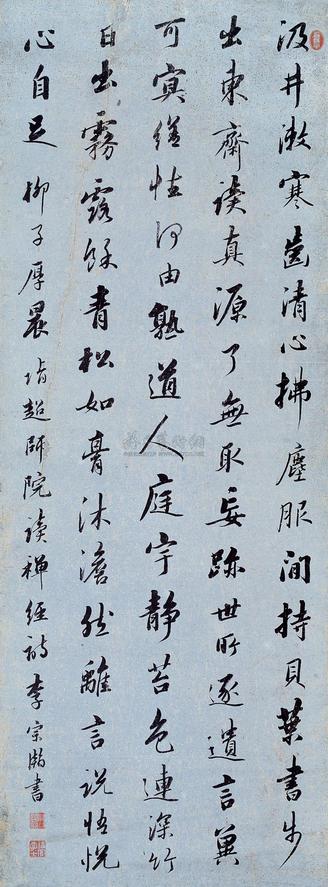 汲井漱寒齒清心拂塵服閒持貝葉書步
出東齋讀真源了無取妄跡世所逐遺言冀
可冥繕性何由熟道人庭宇靜苔色連深竹
日出霧露餘青松如膏沐澹然離言說悟悅
心自足 柳子厚晨詣超師院讀禪經詩李宗瀚書